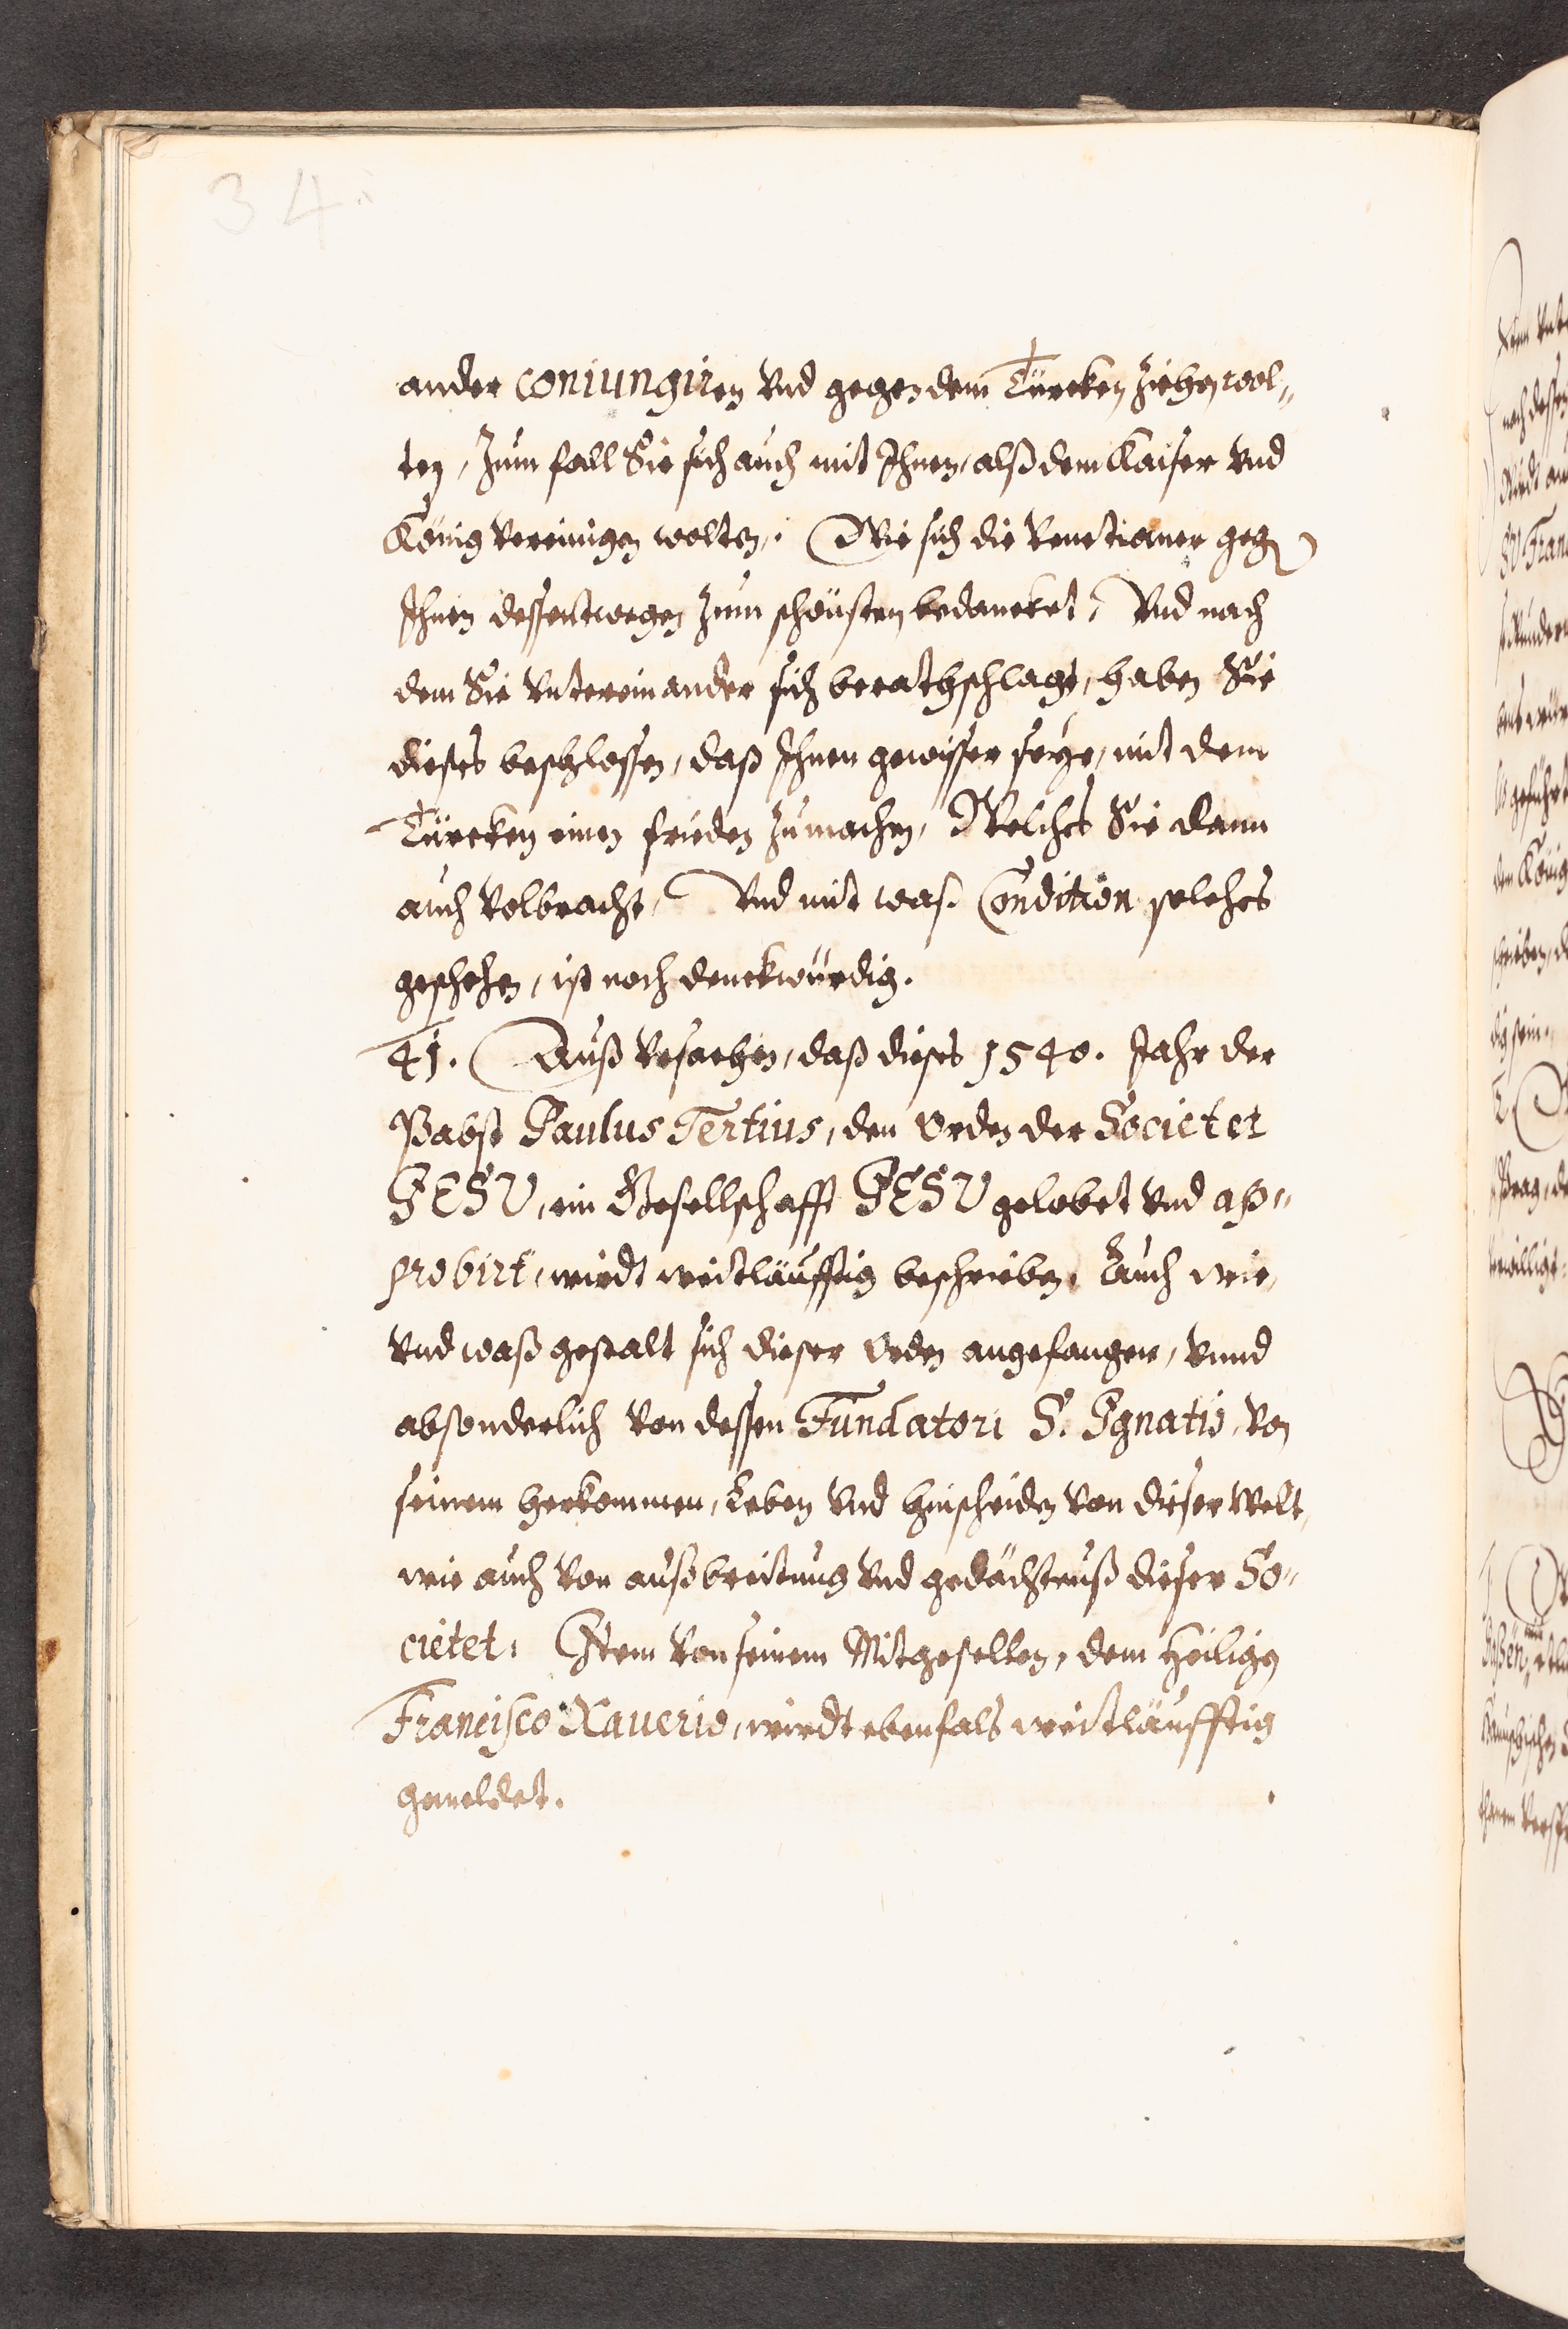 34.
ander coniungiren vnd gegen dem Türcken ziehen wol„
ten, Zum fall Sie sich auch mit Ihnen, alß dem Kaiser vnd
König vereinigen wolten. Wie sich die Venetianer gegen
Ihnen dessentwegen zum schönsten bedancket, Vnd nach
dem Sie vntereinander sich berathschlagt, haben Sie
dieses beschlossen, daß Ihnen gewisser seye, mit dem
Türcken einen frieden zumachen, Welches Sie dann
auch volbracht, Vnd mit waß Condition solches
geschehen, ist noch denckwürdig.
41. Auß vrsachen, daß dieses 1540. Jahr der
Pabst Paulus Tertius, den Orden der Societet
JESV, ein Gesellschafft JESV gelobet vnd ap„
probirt, wirdt weitläufftig beschrieben. Auch wie,
vnd waß gestalt sich dieser Orden angefangen, vnnd
absonderlich von dessen Fundatori S. Ignatio, von
seinem herkommen, Leben vnd hinscheiden von dieser Welt,
wie auch von außbreitung vnd gedächtnuß dieser So„
cietet. Item von seinem Mitgesellen, dem Heiligen
Francisco Xauerio, wirdt ebenfals weitläufftig
gemeldet.